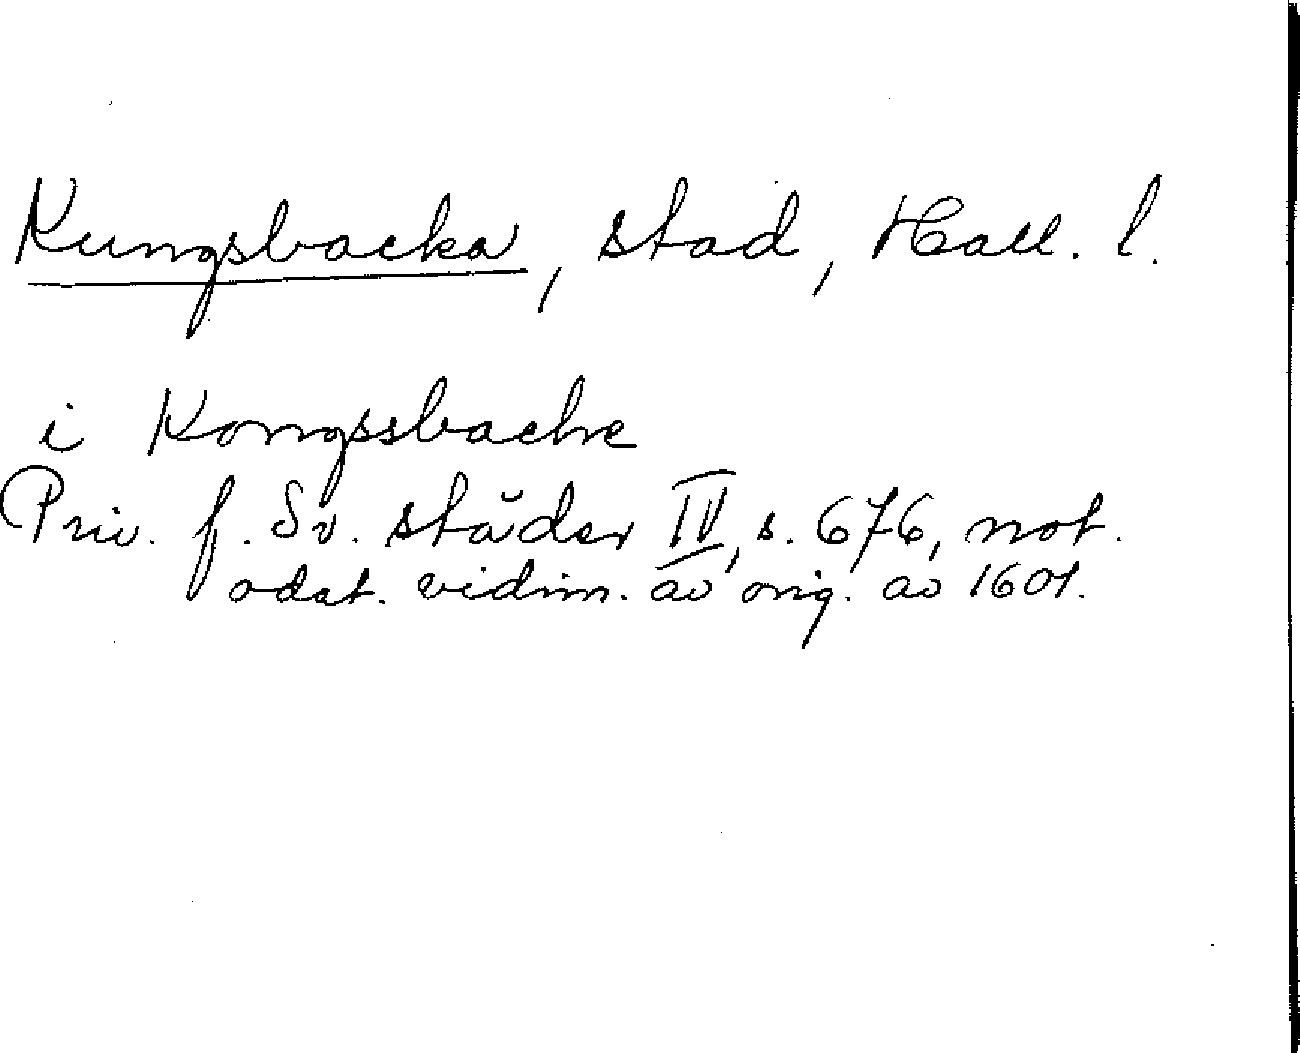 Kungsbacka, stad, Hall. l.
i Kongssbacke
Priv. f. Sv. städer IV, s. 676, not.
odat. vidim. av orig. av 1601.